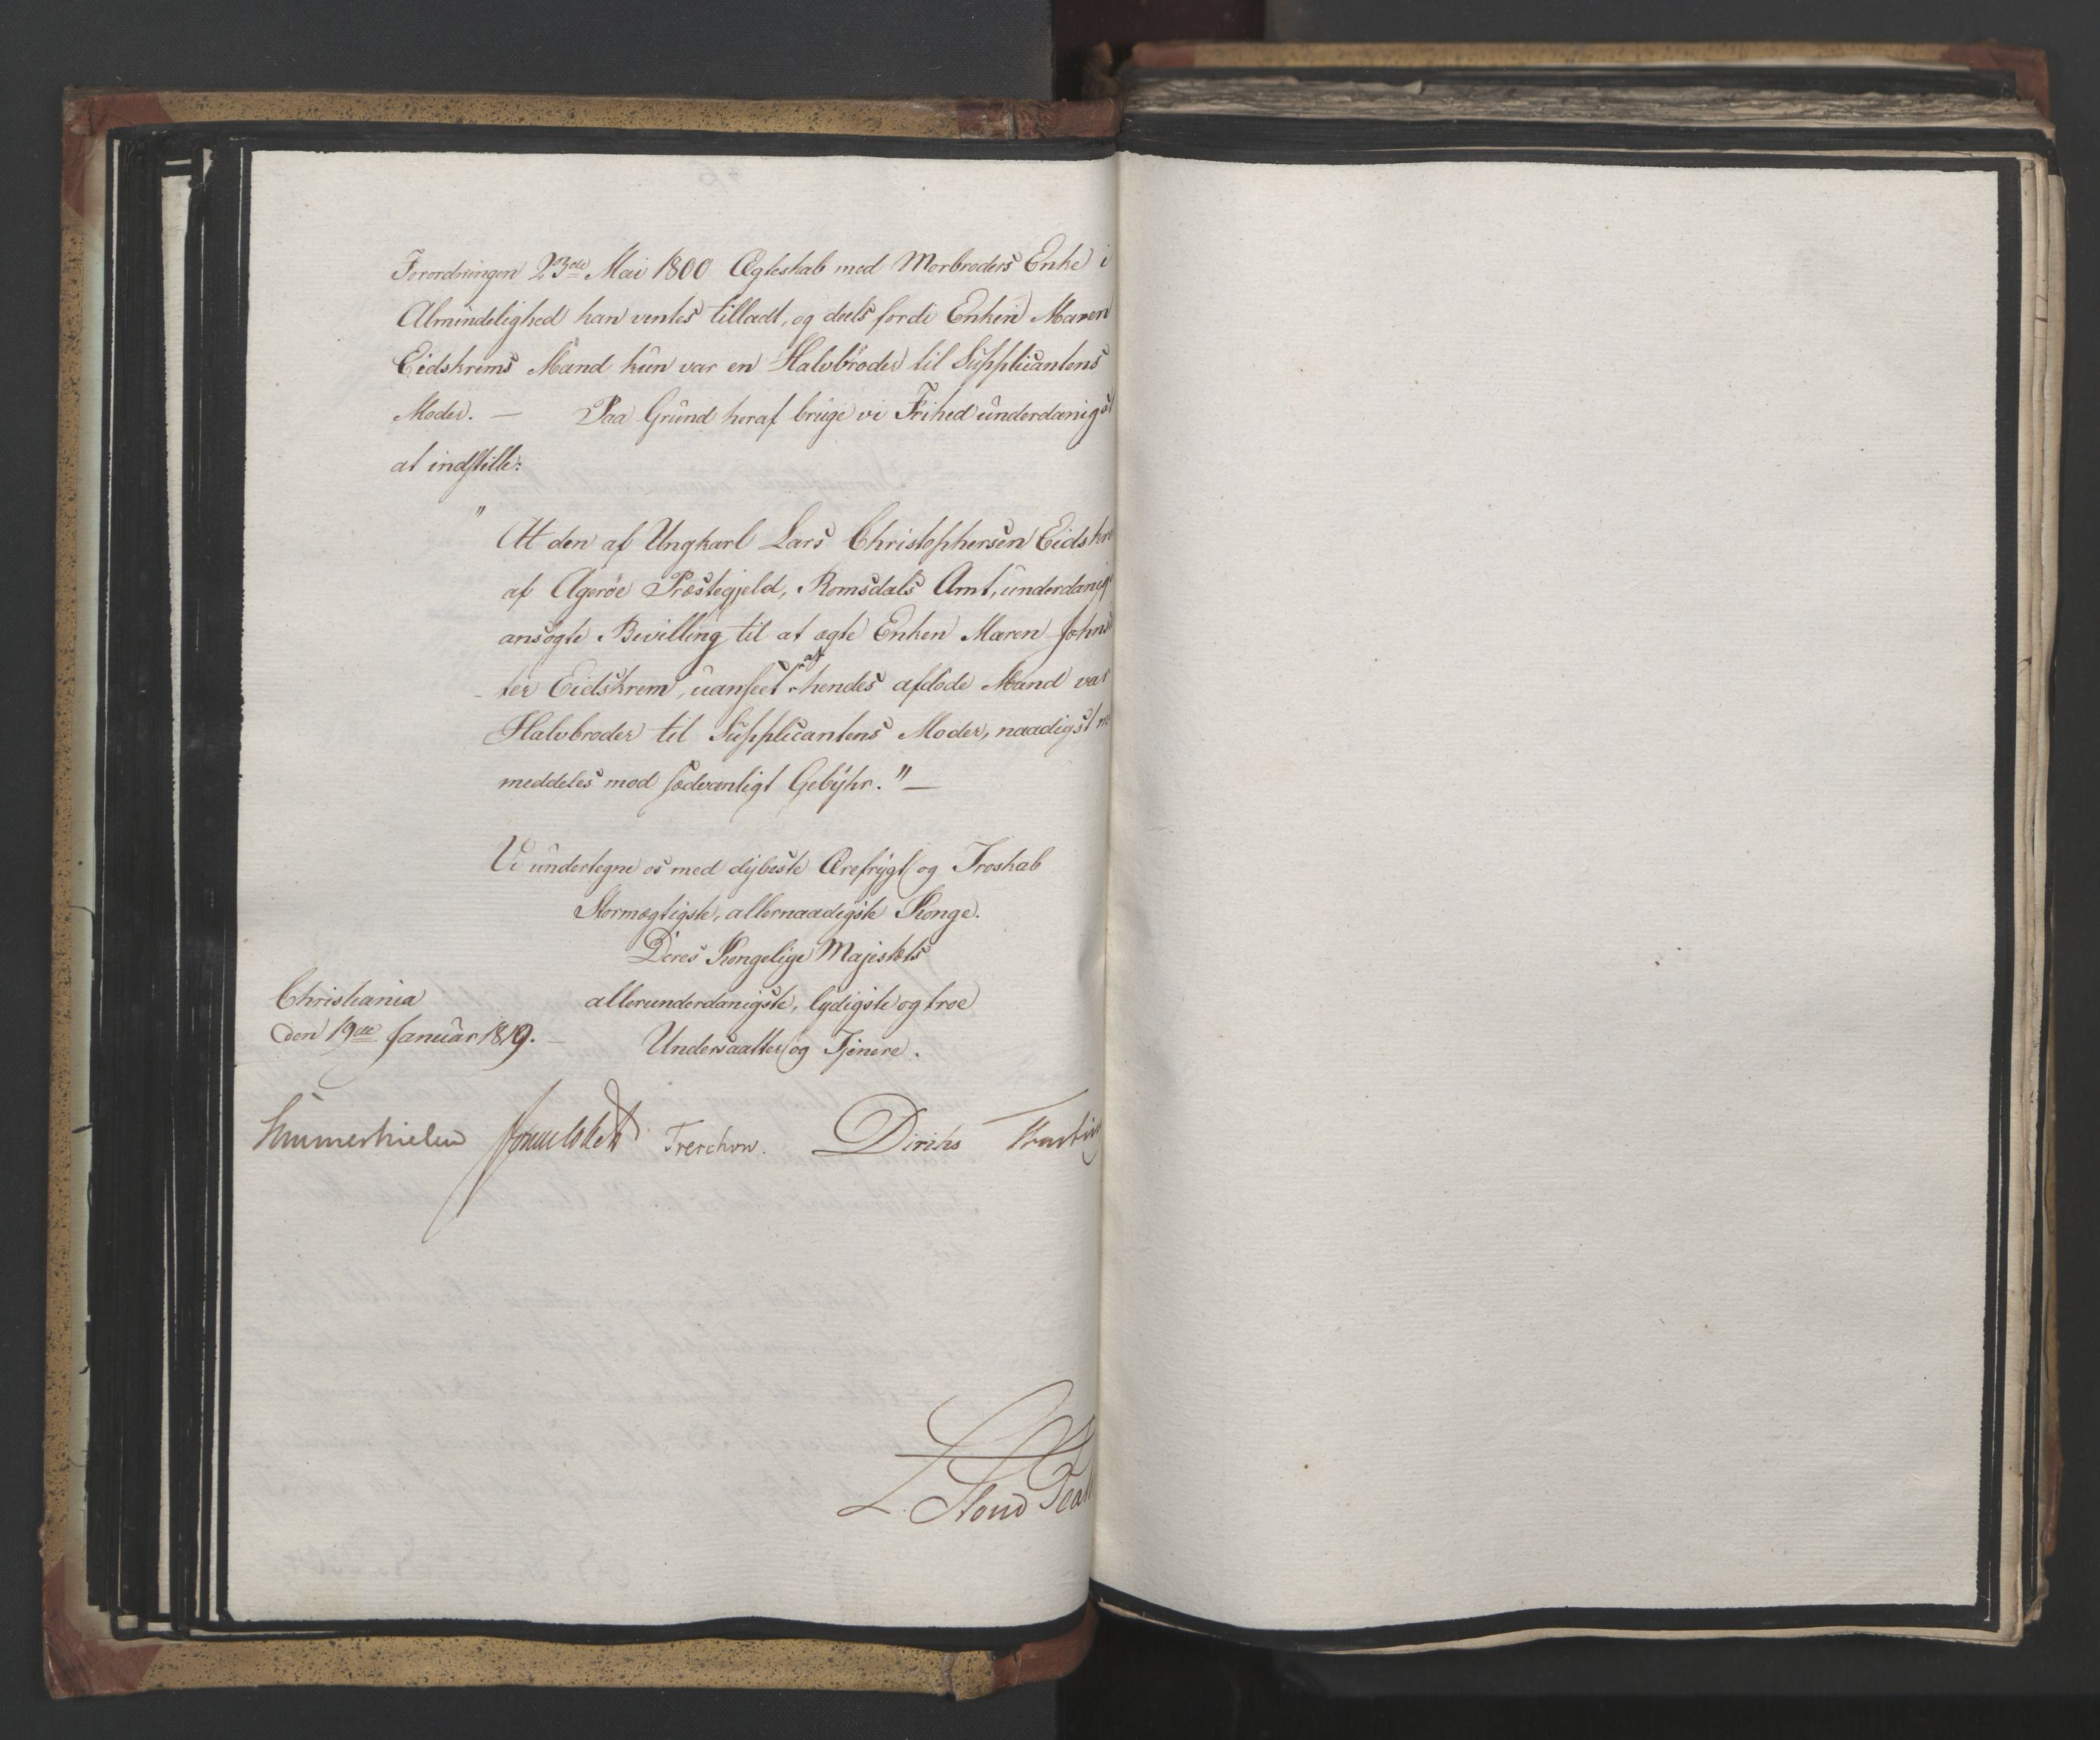 Forordningen 23de Mai 1800 Ægteskab med Morbroders Enke i
Almindelighed kan ventes tilladt, og deels fordi Enken Maren
Eidskrems Mand kun var en Halvbroder til Supplicantens
Moder. — Paa Grund heraf bruge vi Frihed underdanigst
at indstille:
" At den af Ungkarl Lars Christophersen Eidskre
af Agerøe Præstegjeld, Romsdals Amt, underdanig
ansøgte Bevilling til at ægte Enken Maren Johns
ter Eidskrem, uanseet at hendes afdøde Mand var
Halvbroder til Supplicantens Moder, naadigst m
meddeles mod sædvanligt Gebyhr." —
Vi undertegne os med dybeste Ærefrygt og Troskab
Stormægtigste, allernaadigste Konge.
Deres Kongelige Majestæts
Christiania allerunderdanigste, lydigste og troe
den 19de Januar 1819. — Undersaatter og Tjenere.
Sommerhielm Treschow. Diriks
L. Stoud Plat